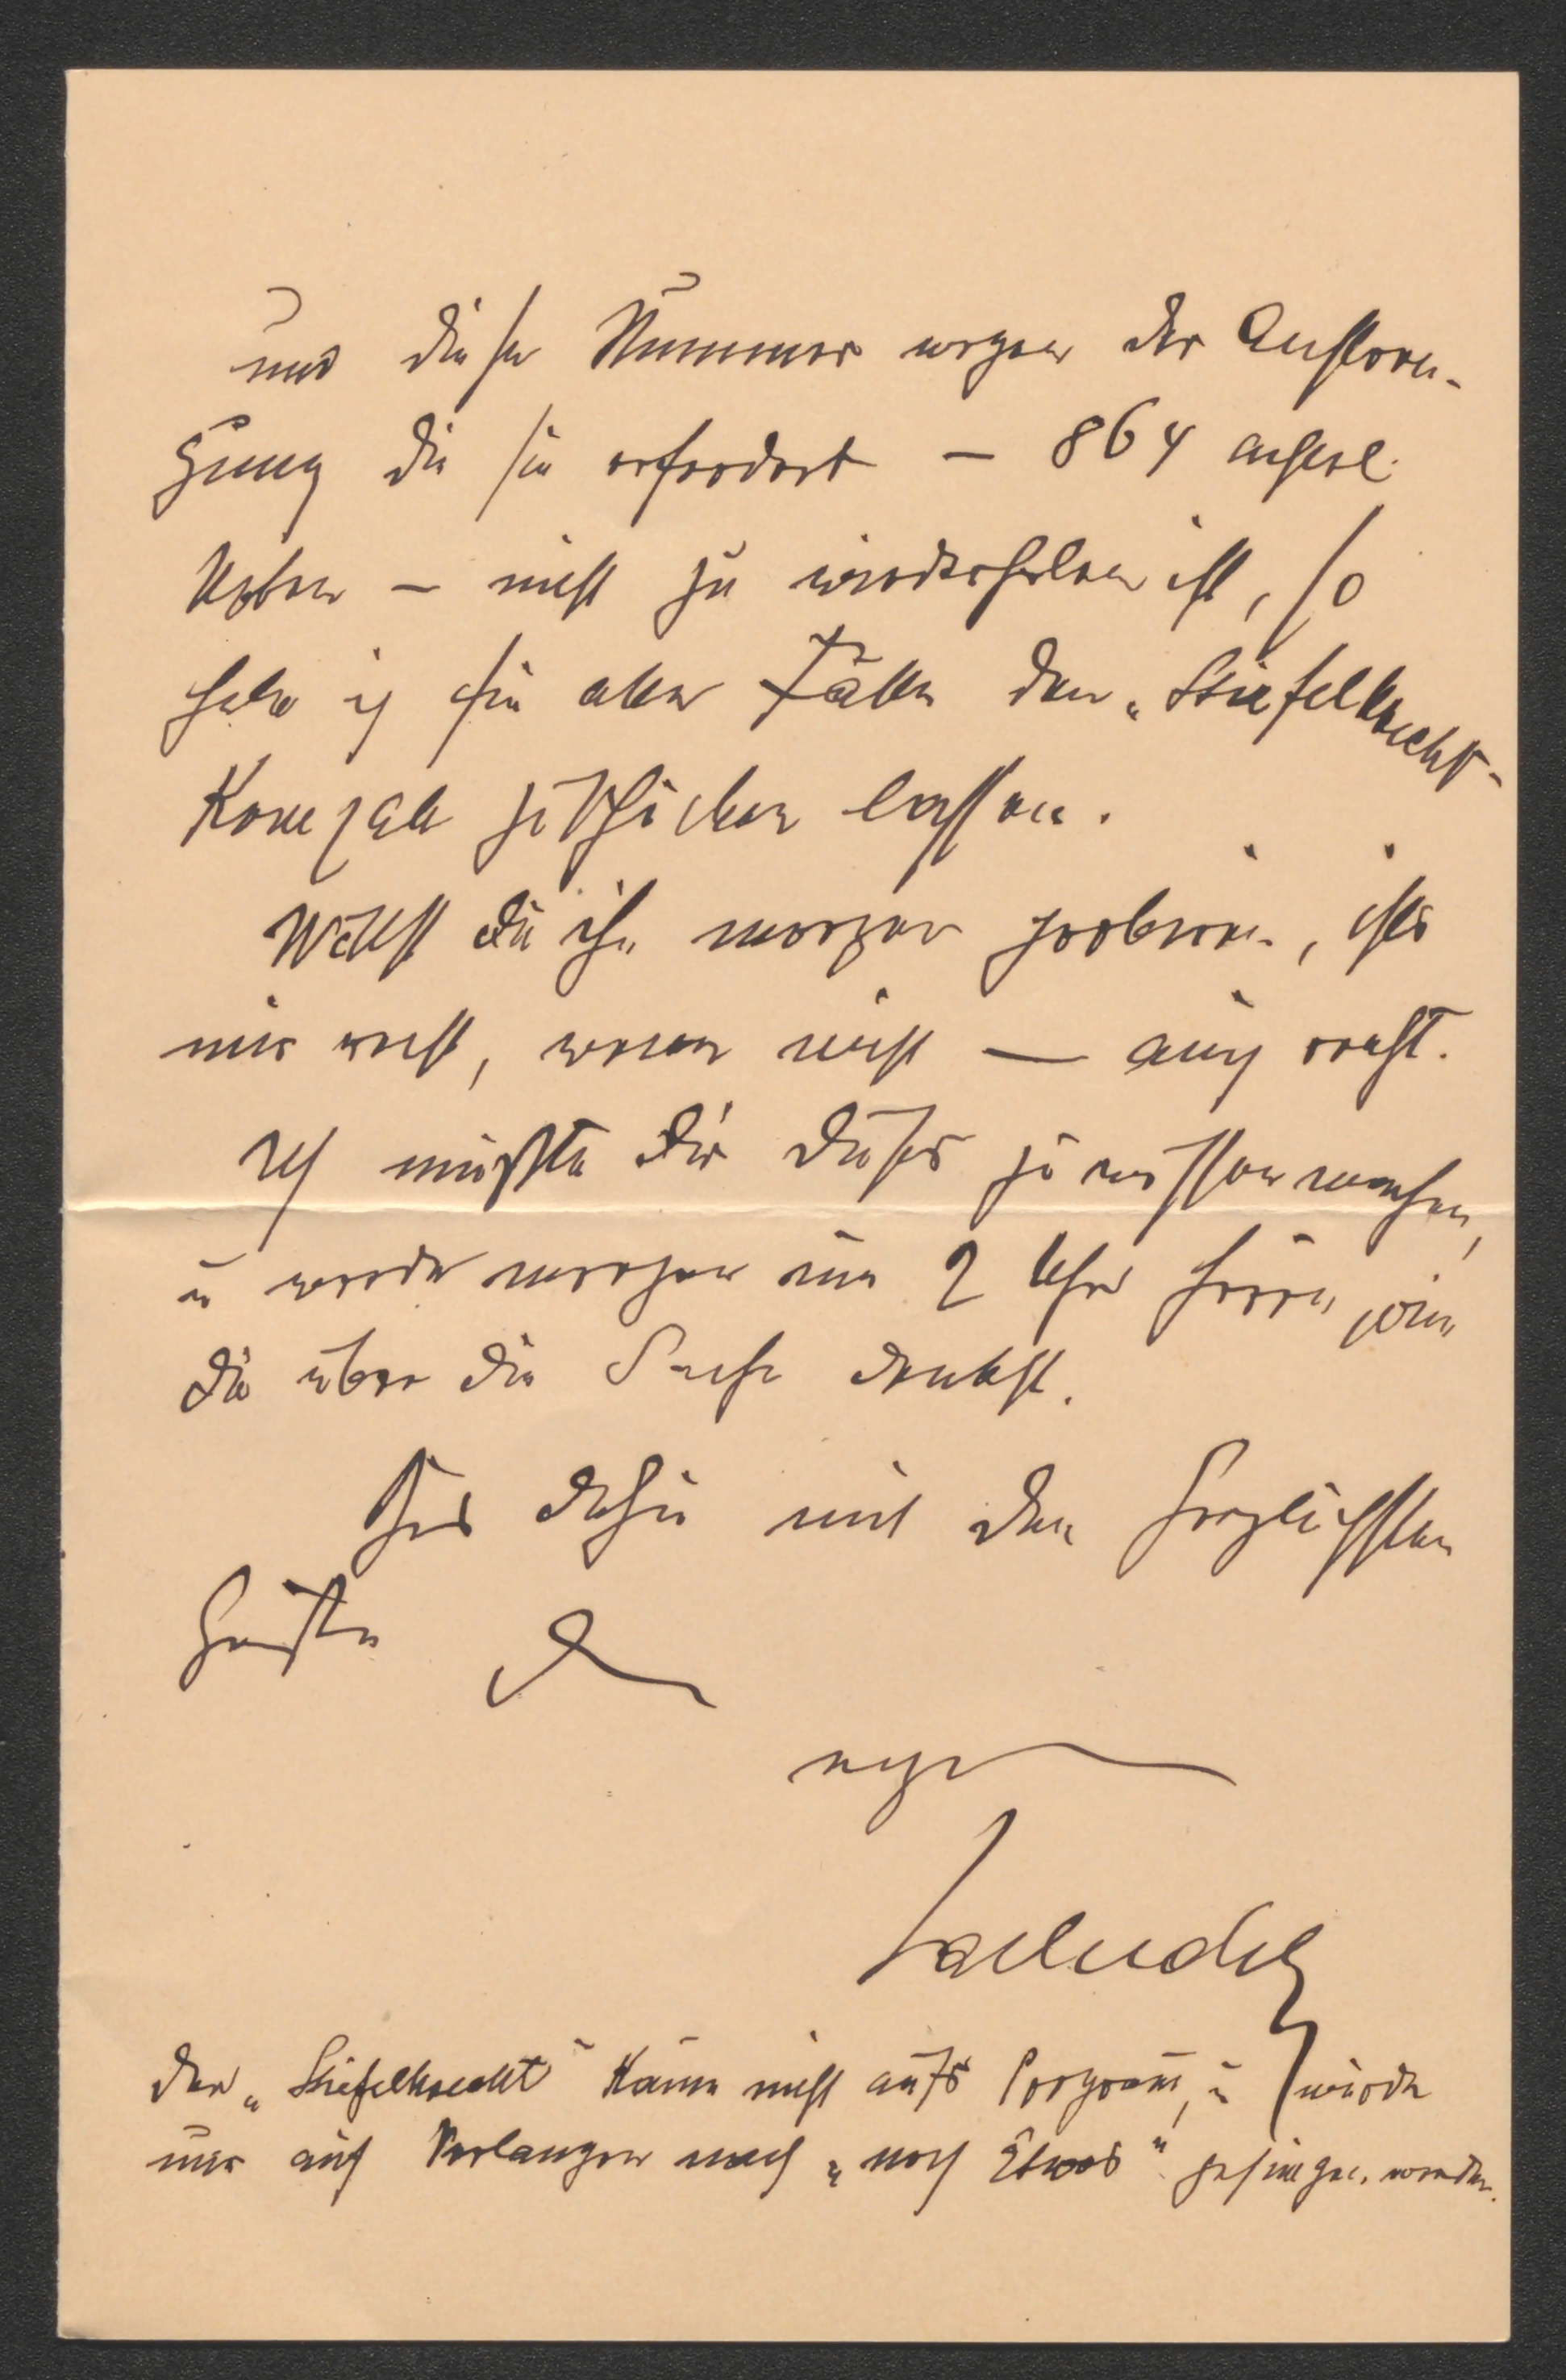 und diese Nummer wegen der Anstren-
gung die sie erfordert – 864 achtel
Noten – nicht zu wiederholen ist, so
habe ich für alle Fälle den „Stiefelknecht-
schicken lassen.
Willst Du ihn morgen probiren, ists
mir recht, wenn nicht – auch recht.
Ich mußte Dir dieses zu wissen machen,
u werde morgen um 2 Uhr hören wie
Du über die Sache denkst.
Bis dahin mit den herzlichsten
Grüßen Dein
ergebener
Der „Stiefelknecht“ kann nicht aufs Program, u würde
nur auf Verlangen nach „noch Etwas“ gesungen werden.